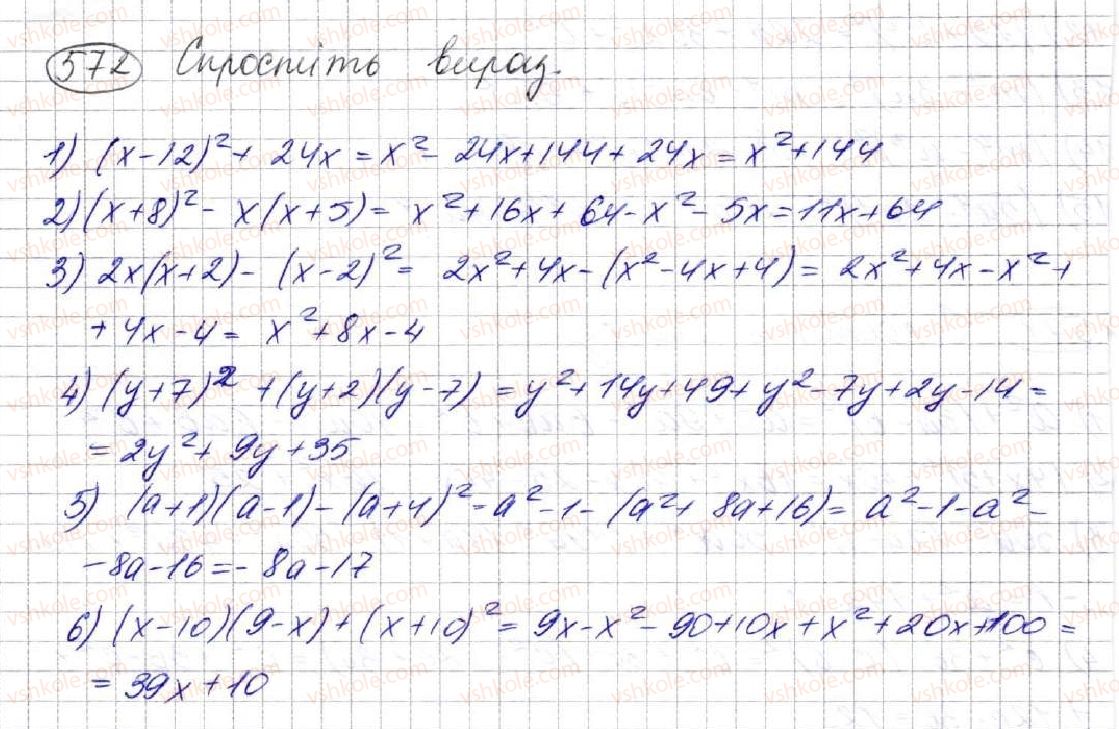 572 Спростіть вираз.
1) (x-12)²+ 24x = x²- 24x+144+ 24x = x²+144
2) (x+8)²- x(x+5)= x²+16x+ 64-x²- 5x=11x+64
3) 2x(x+2)- (x-2)²= 2x²+4x-(x²-4x+4)= 2x²+4x-x²+
+ 4x-4= x²+8x-4
4) (y+7)² +(y+2)(y-7) = y²+14y+49+y²-7y+2y-14=
= 2y²+ 9y+35
5) (a+1)(a-1)-(a+4)²=a²-1-(a²+ 8a+16)= a²-1-a²-
-8a-16=-8a-17
6) (x-10)(9-x)+(x+10)²= 9x-x²-90+10x+x²+20x+100=
= 39x+10